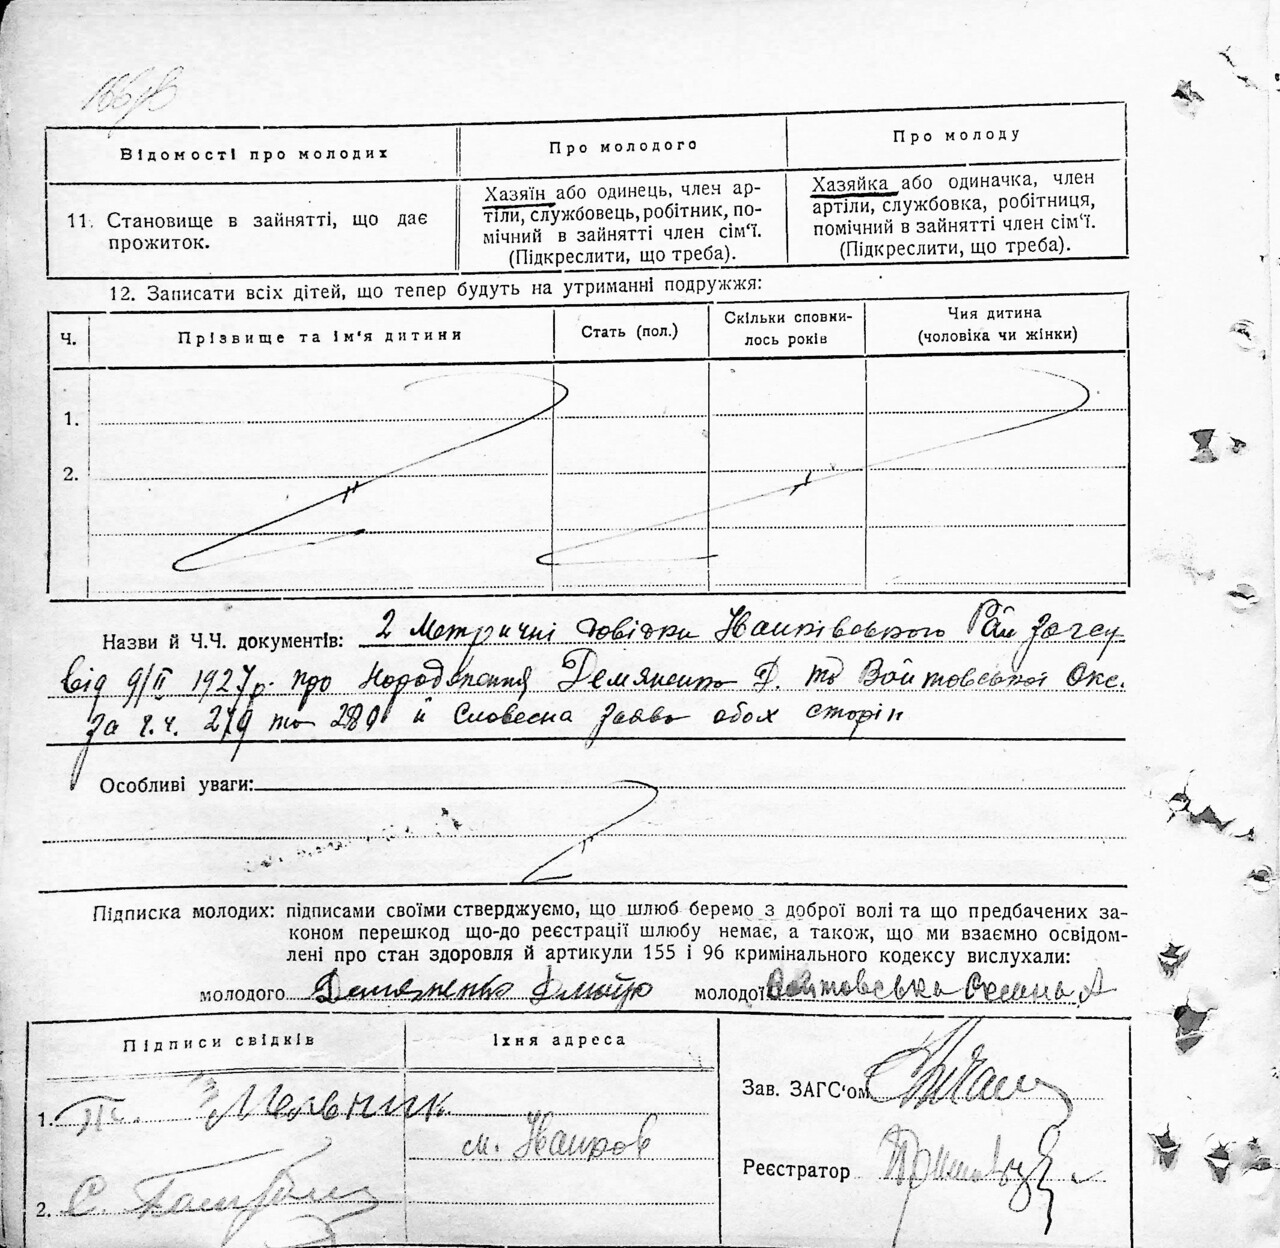 Відомості про молодих
Про молодого
Про молоду
11. Становище в зайнятті, що дає
прожиток.
Хазяїн або одинець, член ар-
тіли, службовець, робітник, по-
мічний в зайнятті член сім'ї.
(Підкреслити, що треба).
Хазяйка або одиначка, член
артіли, службовка, робітниця,
помічний в зайнятті член сім'ї.
(Підкреслити, що треба).
12. Записати всіх дітей, що тепер будуть на утриманні подружжя:
Ч.
Прізвище та ім'я дитини
Стать (пол.)
Скільки сповни-
лось років
Чия дитина
(чоловіка чи жінки)
1.
2.
Назви й Ч.Ч. документів: 2 Метричні довідки Іванківського Рай Загсу
від 9/II 1927 р. про народження Демяненка Д. та Войтовської Окс.
за ч.ч. 279 та 280 й словесна заява обох сторін
Особливі уваги:
Підписка молодих: підписами своїми стверджуємо, що шлюб беремо з доброї волі та що предбачених за-
коном перешкод що-до реєстрації шлюбу немає, а також, що ми взаємно освідом-
лені про стан здоровля й артикули 155 і 96 кримінального кодексу вислухали:
молодого Демяненко Дмитро молодої Войтовська Оксана
Підписи свідків
Їхня адреса
1. Мельник
м. Іванків
2. С.
Зав. ЗАГС'ом
Реєстратор